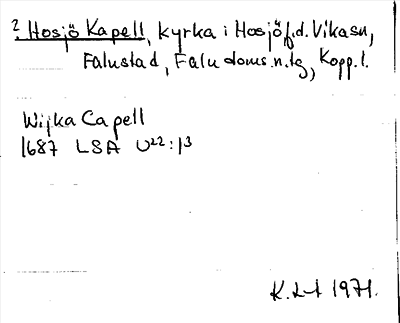 ? Hosjö Kapell, kyrka i Hosjö f.d. Vika sn,
Falu stad, Falu doms.n. tg, Kopp. l.
Wijka Capell
1687 LSA U22:13
K. L-t 1971.